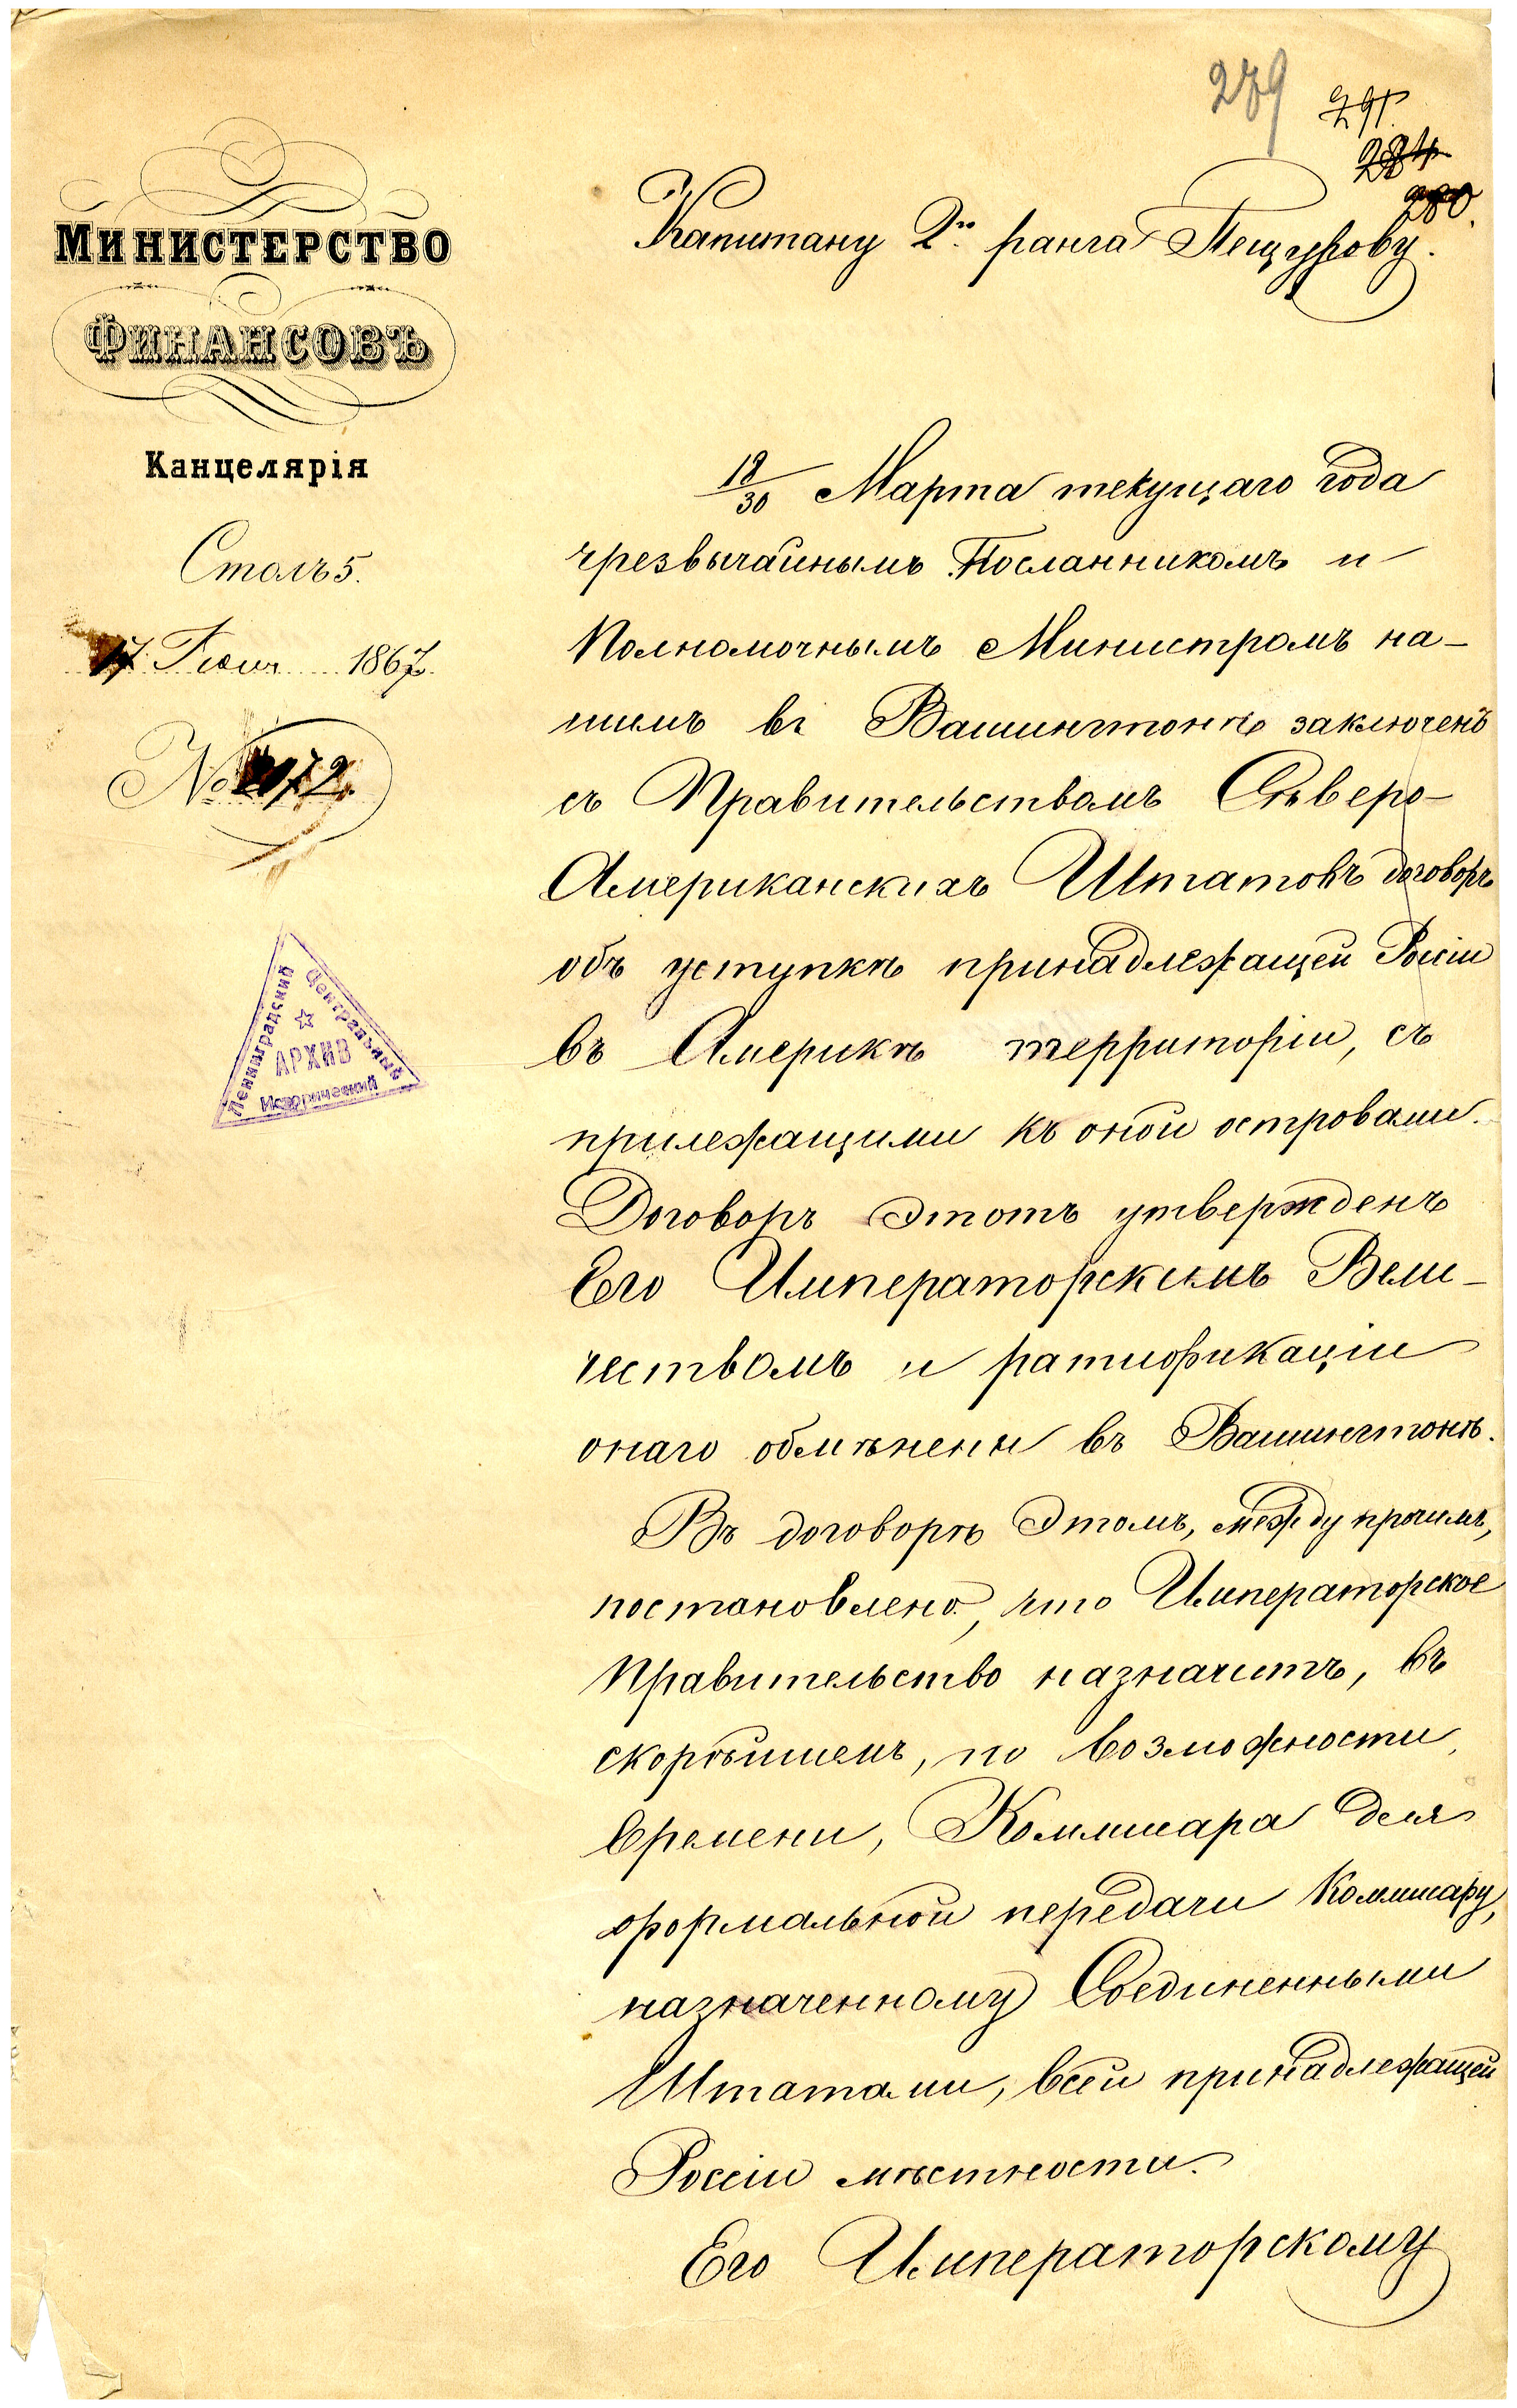 279
291.
284
280.
МИНИСТЕРСТВО
ФИНАНСОВЪ
Канцелярія
Столъ 5.
17 Іюня 1867.
№ 2072.
Ленинградский
Центральный
АРХИВ
Исторический
Капитану 2го ранга Пещурову.
18/30 Марта текущаго года
чрезвычайнымъ Посланникомъ и
Полномочнымъ Министромъ на-
шимъ въ Вашингтонѣ заключенъ
съ Правительствомъ Сѣверо-
Американскихъ Штатовъ договоръ
объ уступкѣ принадлежащей Россіи
въ Америкѣ территоріи, съ
прилежащими къ оной островами.
Договоръ этотъ утвержденъ
Его Императорскимъ Вели-
чествомъ и ратификаціи
онаго обмѣнены въ Вашингтонѣ.
Въ договорѣ этомъ, между прочимъ,
постановлено, что Императорское
Правительство назначитъ, въ
скорѣйшемъ, по возможности,
времени, Коммисара для
формальной передачи Коммисару,
назначенному Соединенными
Штатами, всей принадлежащей
Россіи мѣстности.
Его Императорскому